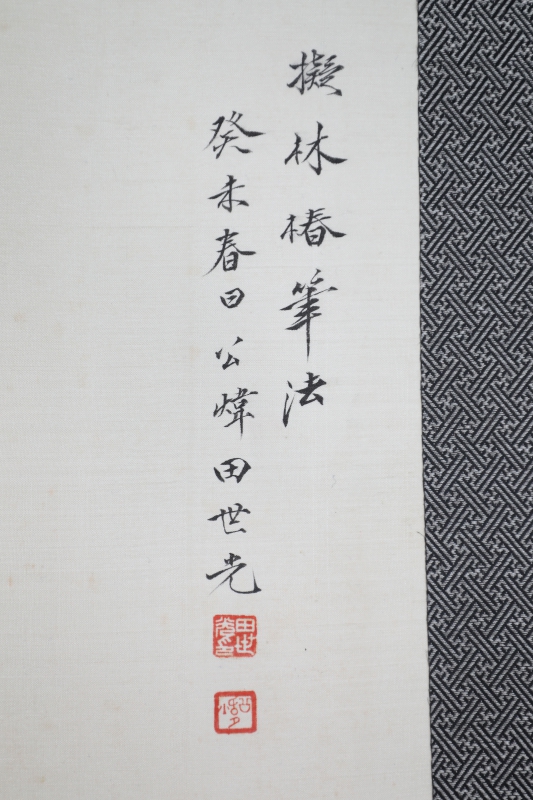 擬林椿筆法
癸未春日公煒田世光
田世光印
公煒